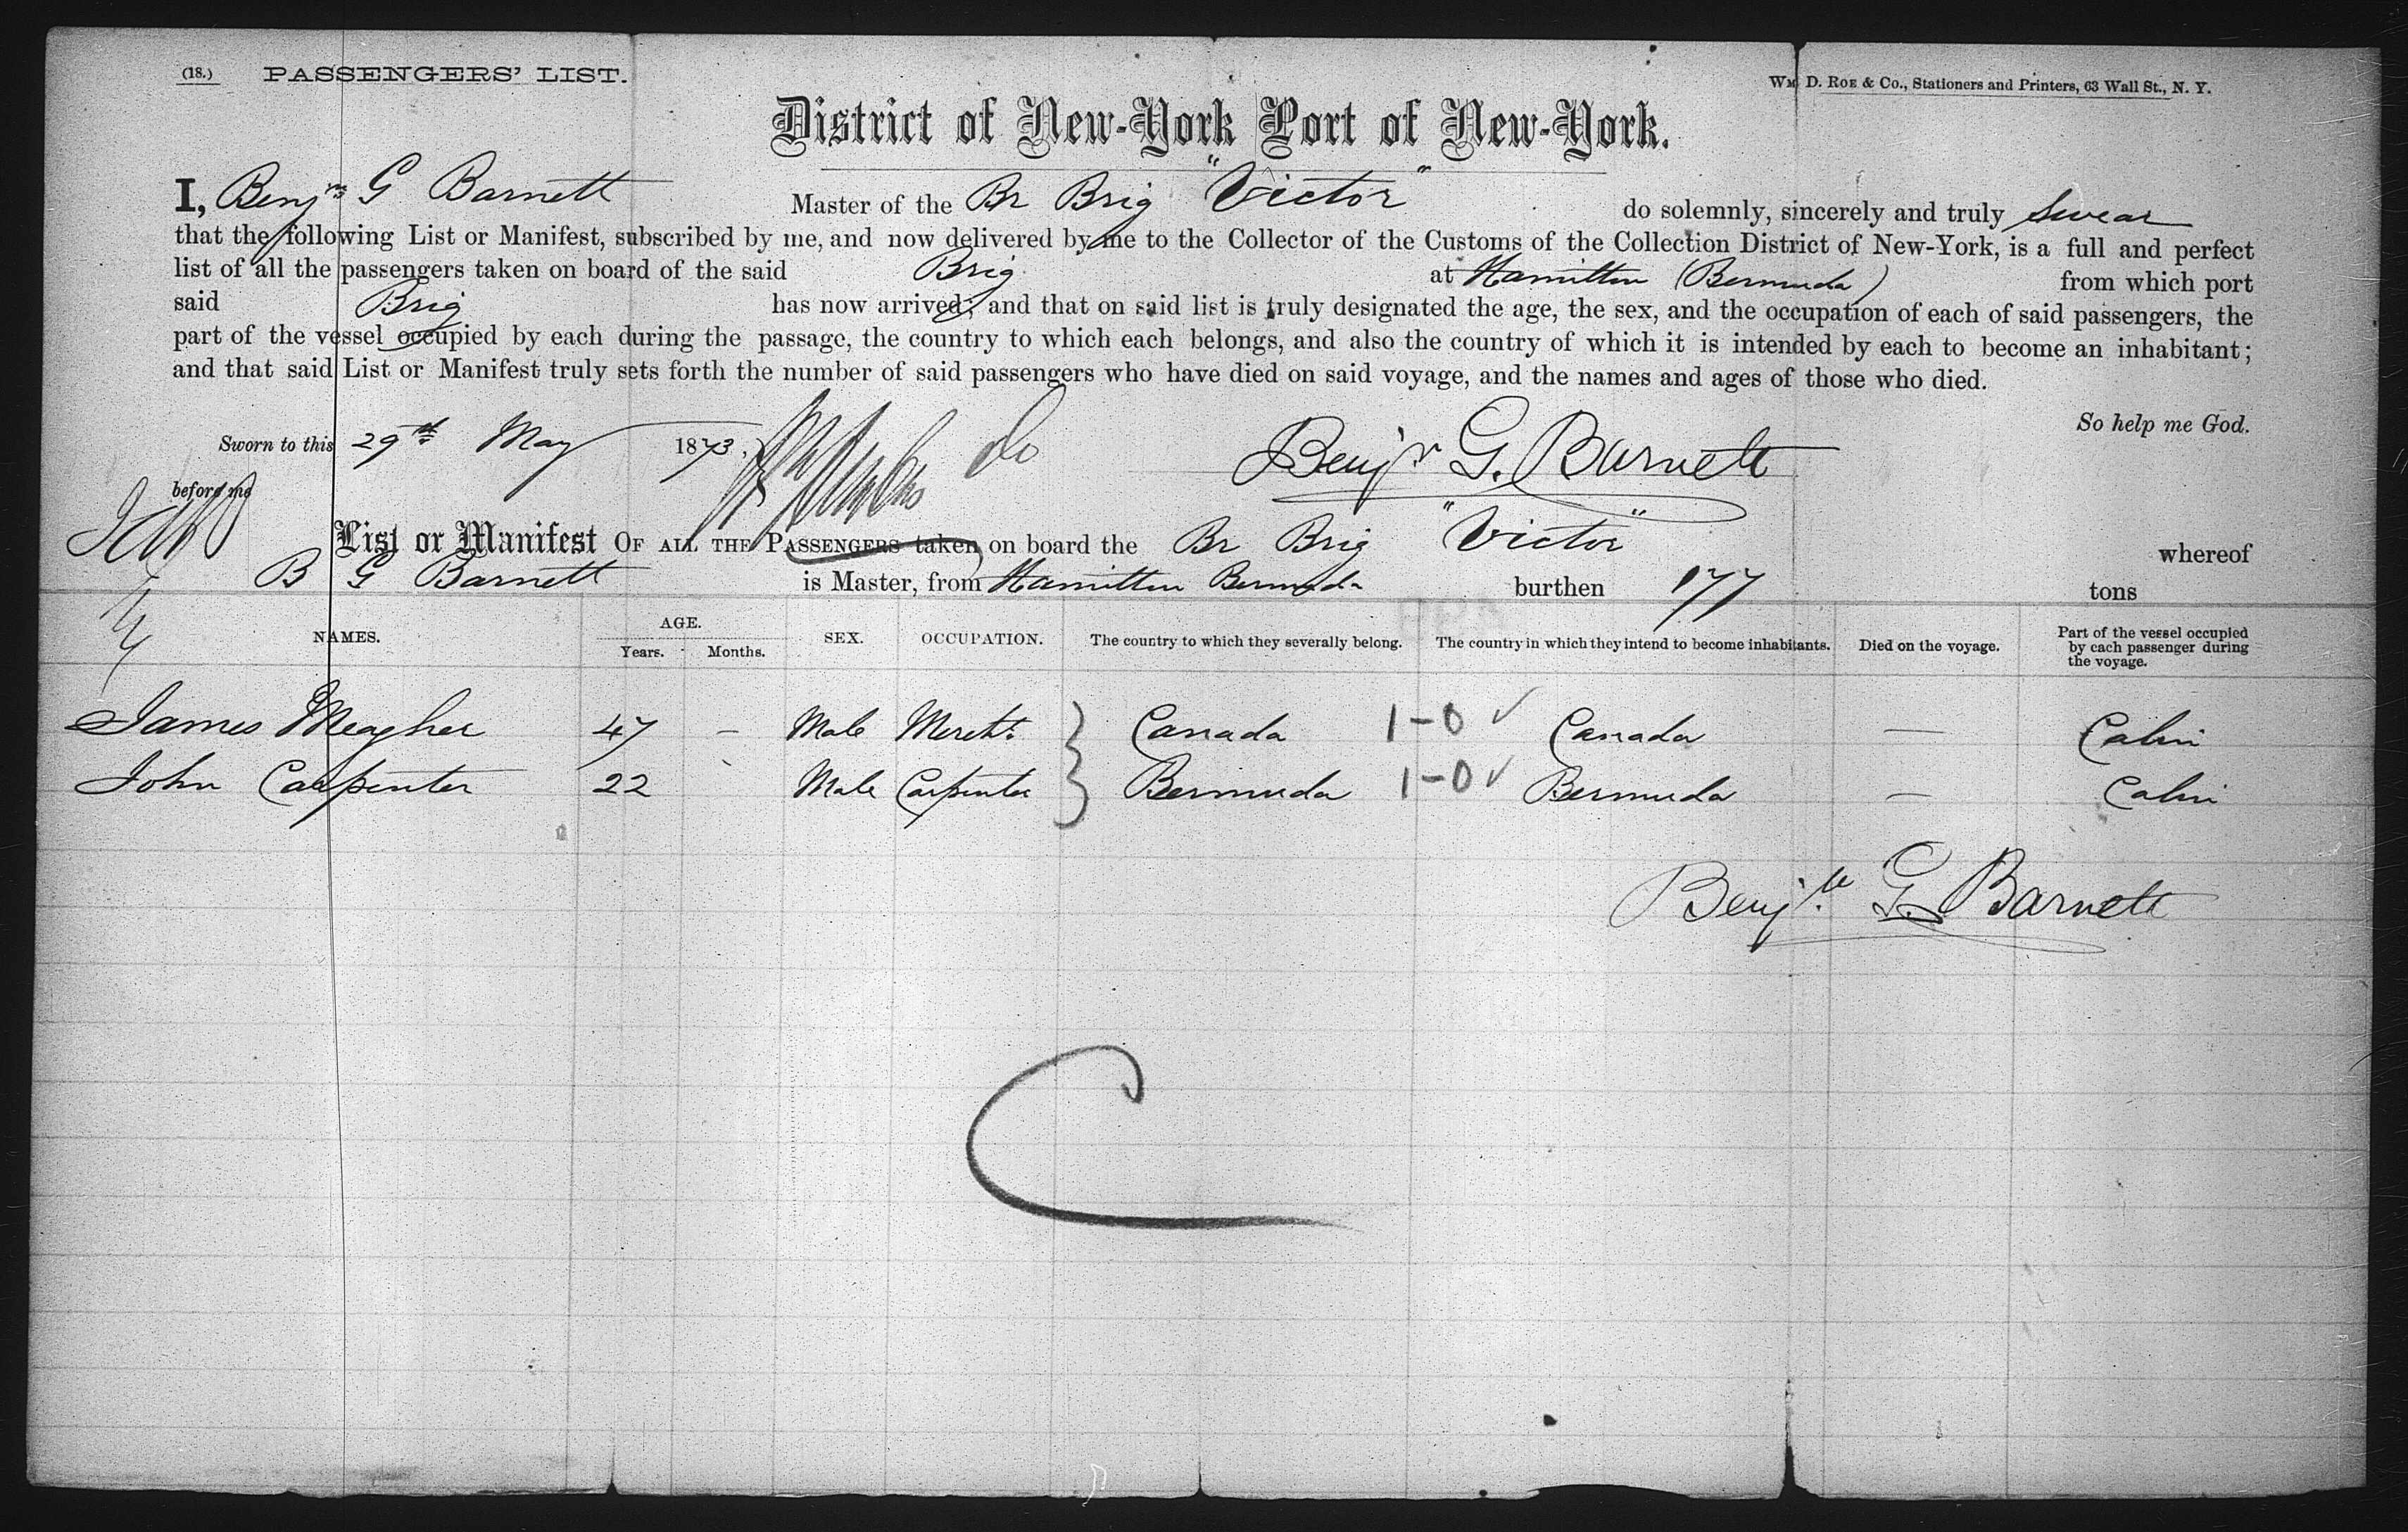 (18.) PASSENGERS' LIST.
WM. D. ROE & CO., Stationers and Printers, 63 Wall St., N. Y.
District of New-York Port of New-York.
I, Benjn G Barnett Master of the Br Brig "Victor" do solemnly, sincerely and truly swear
that the following List or Manifest, subscribed by me, and now delivered by me to the Collector of the Customs of the Collection District of New-York, is a full and perfect
list of all the passengers taken on board of the said Brig at Hamilton (Bermuda) from which port
said Brig has now arrived; and that on said list is truly designated the age, the sex, and the occupation of each of said passengers, the
part of the vessel occupied by each during the passage, the country to which each belongs, and also the country of which it is intended by each to become an inhabitant;
and that said List or Manifest truly sets forth the number of said passengers who have died on said voyage, and the names and ages of those who died.
So help me God.
Sworn to this 29th May 1873, Benjn G. Barnett
before me
List or Manifest OF ALL THE PASSENGERS taken on board the Br Brig "Victor" whereof
B G Barnett is Master, from Hamilton Bermuda burthen 177 tons
NAMES. AGE. Years. Months. SEX. OCCUPATION. The country to which they severally belong. The country in which they intend to become inhabitants. Died on the voyage. Part of the vessel occupied by each passenger during the voyage.
James Meagher 47 – Male Mercht. } Canada 1-0 ✓ Canada — Cabin
John Carpenter 22 Male Carpenter } Bermuda 1-0 ✓ Bermuda — Cabin
Benjn G. Barnett
C